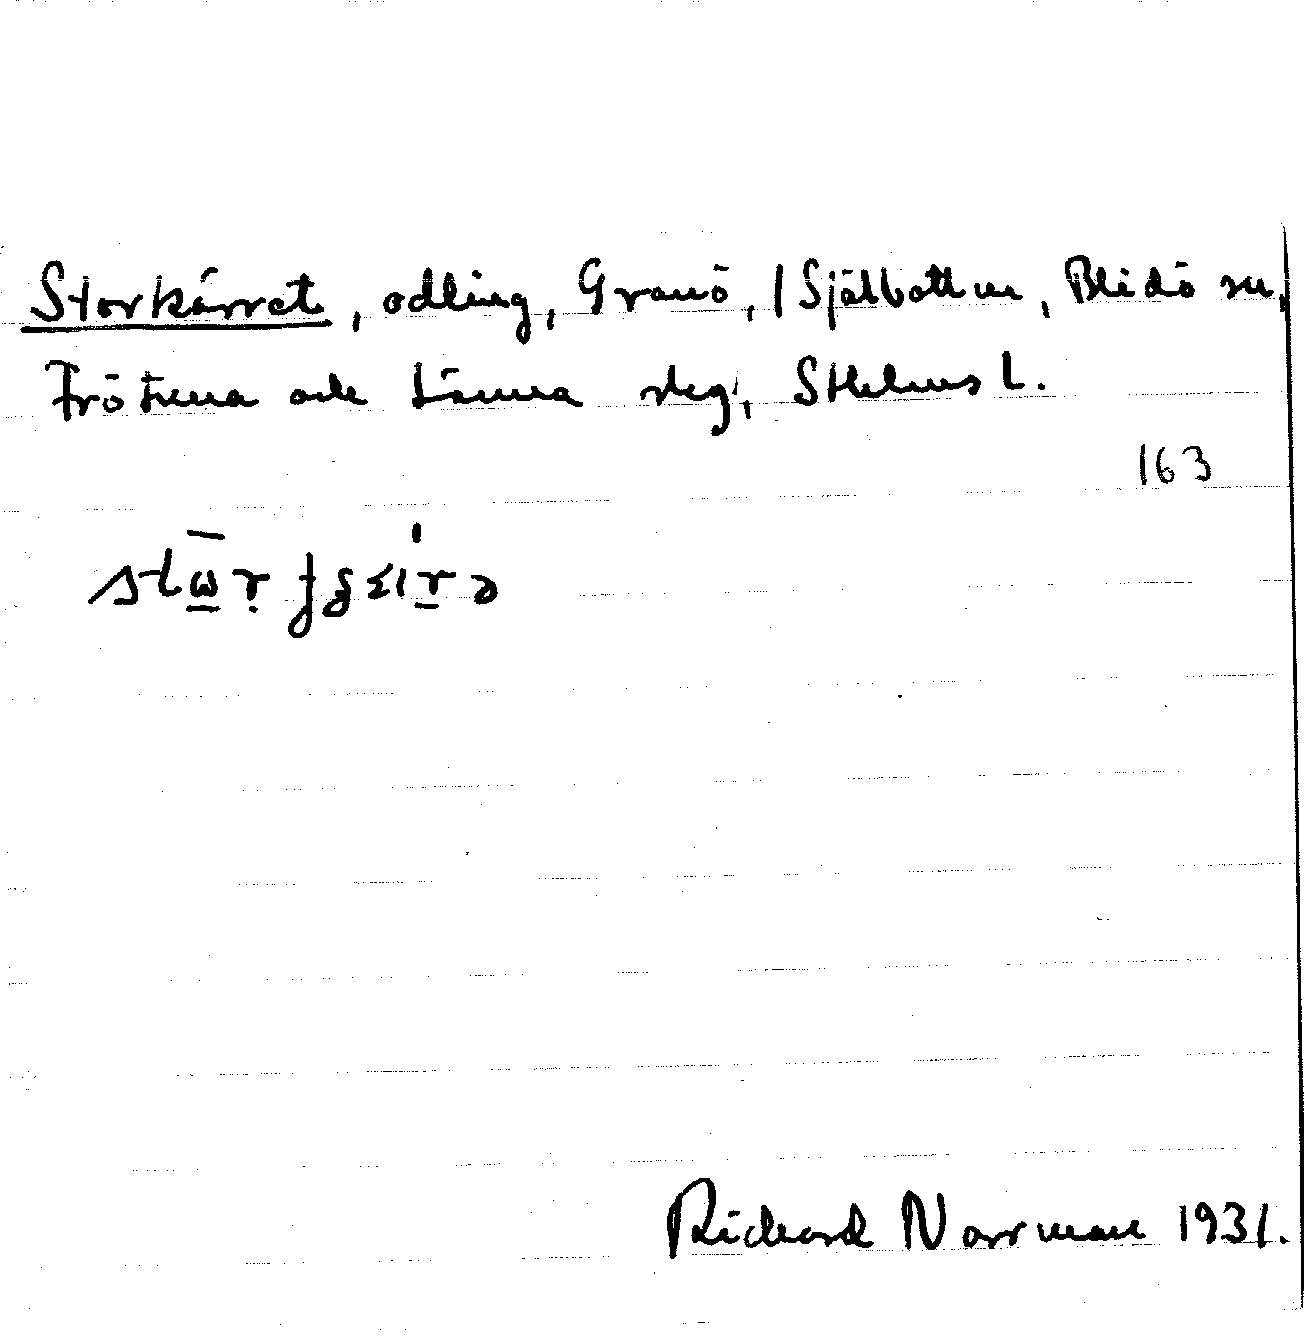 Storkärret, odling, Granö, Själbottna, Blidö sn,
Frötuna och Länna skg, Sthlms l.
163
Richard Norrman 1931.